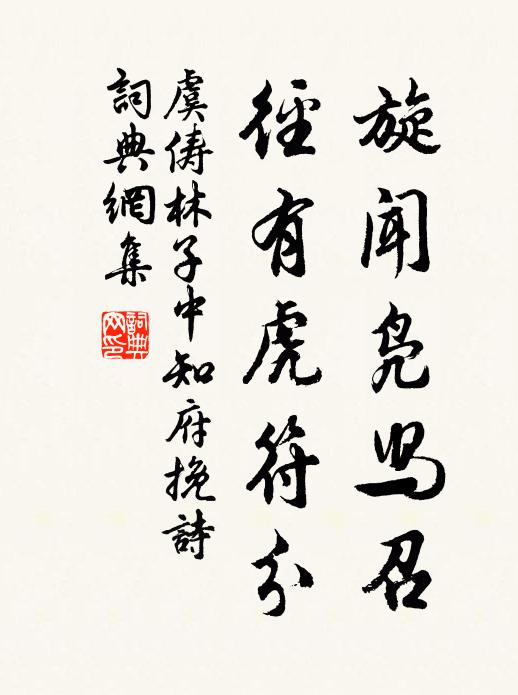 旋聞凫舄召
徑有虎符分
虞俦林子中知府挽詩
詞典網集
詞典網印